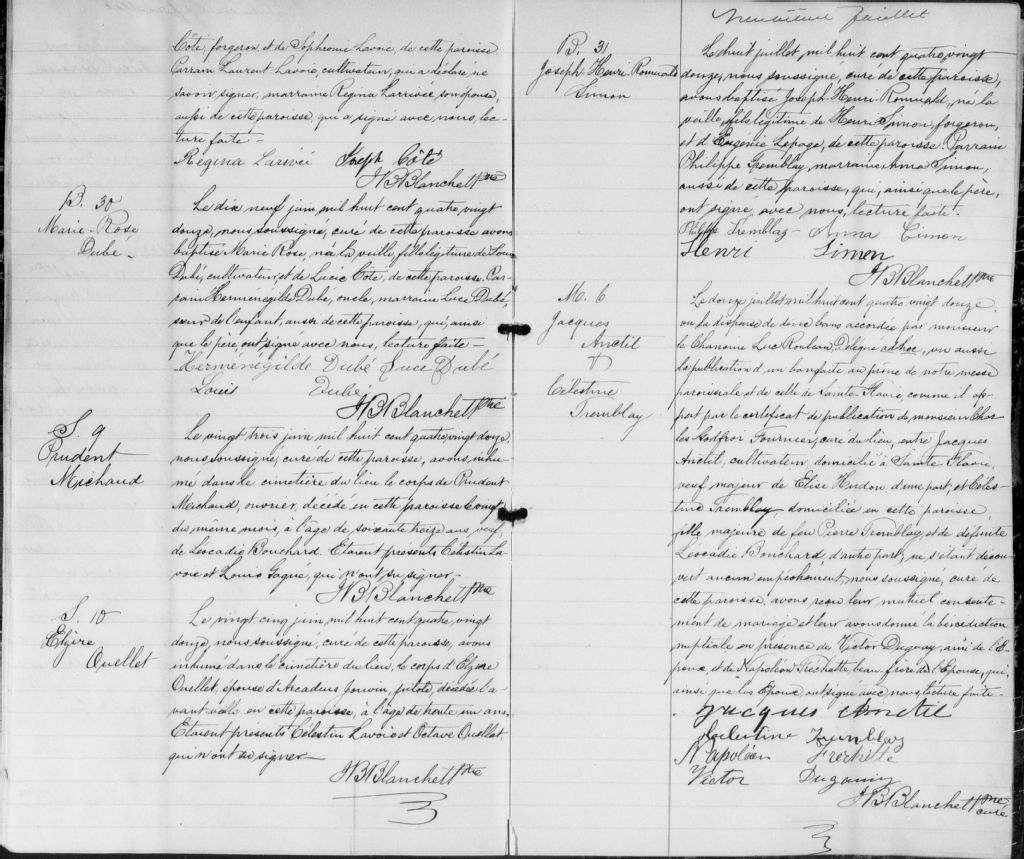 Côté, forgeron, et de Sophronie Lavoie, de cette paroisse
Parrain Laurent Lavoie, cultivateur, qui a déclaré ne
savoir signer, marraine Regina Larrivée son épouse,
aussi de cette paroisse, qui a signé avec nous, lec-
ture faite -
Regina Larivéi Joseph Côté
J B Blanchet Ptre
B. 30
Marie-Rose
Dubé -
Le dix neuf juin mil huit cent quatre vingt
douze, nous soussigné, curé de cette paroisse avons
baptisé Marie Rose, née la veille, fille légitime de Louis
Dubé, cultivateur, et de Lucie Côté, de cette paroisse. Par-
rain Herménégilde Dubé, oncle, marraine Luce Dubé,
sœur de l'enfant, aussi de cette paroisse, qui, ainsi
que le père, ont signé avec nous, lecture faite -
Herménégilde Dubé Luce Dubé
Louis Dubé
J B Blanchet Ptre
S. 9
Prudent
Michaud
Le vingt trois juin mil huit cent quatre vingt douze,
nous soussigné, curé de cette paroisse, avons inhu-
mé dans le cimetière du lieu le corps de Prudent
Michaud, ouvrier, décédé en cette paroisse le vingt
du même mois, à l'âge de soixante treize ans, veuf
de Leocadie Bouchard. Etaient présents Célestin La-
voie et Louis Gagné, qui n'ont su signer -
J B Blanchet Ptre
S. 10
Elzire
Ouellet
Le vingt cinq juin mil huit cent quatre vingt
douze, nous soussigné, curé de cette paroisse, avons
inhumé dans le cimetière du lieu, le corps d'Elzire
Ouellet, épouse d'Arcadius Jouvin, pilote, décédée l'a-
vant-veille en cette paroisse, à l'âge de trente un ans,
Etaient présents Célestin Lavoie et Octave Ouellet,
qui n'ont su signer -
J B Blanchet Ptre
juillet
B. 31
Joseph Henri Romuald
Simon
Le huit juillet, mil huit cent quatre vingt
douze, nous soussigné, curé de cette paroisse,
avons baptisé Joseph Henri Romuald, né la
veille, fils légitime de Henri Simon, forgeron,
et d'Eugénie Lepage, de cette paroisse. Parrain
Philippe Tremblay, marraine Anna Simon,
aussi de cette paroisse, qui, ainsi que le père,
ont signé avec nous, lecture faite -
Philippe Tremblay - Anna Simon
Henri Simon
J B Blanchet Ptre
M. 6
Jacques
Anctil
+
Célestine
Tremblay
Le douze juillet mil huit cent quatre vingt douze.
vu la dispense de deux bans accordée par monsieur
le Chanoine Luc Rouleau, Délégué adhoc, vu aussi
la publication d'un ban faite au prône de notre messe
paroissiale et de celle de Sainte Flavie, comme il ap-
pert par le certificat de publication de monsieur Char-
les Godfroi Fournier, curé du lieu, entre Jacques
Anctil, cultivateur, domicilié à Sainte Flavie,
veuf majeur de Elise Hudon, d'une part; et Céles-
tine Tremblay domiciliée en cette paroisse,
fille majeure de feu Pierre Tremblay et de défunte
Léocadie Bouchard, d'autre part; ne s'étant décou-
vert aucun empêchement, nous soussigné, curé de
cette paroisse, avons reçu leur mutuel consente-
ment de mariage et leur avons donné la bénédiction
nuptiale en présence de Victor Duguay, ami de l'E-
poux, et de Napoléon Fréchette, beau frère de l'Epouse, qui,
ainsi que les Epoux, ont signé avec nous, lecture faite -
Jacques Anctil
Celestine Tremblay
Napoléon Frechette
Victor Duguay
J B Blanchet Ptre
curé